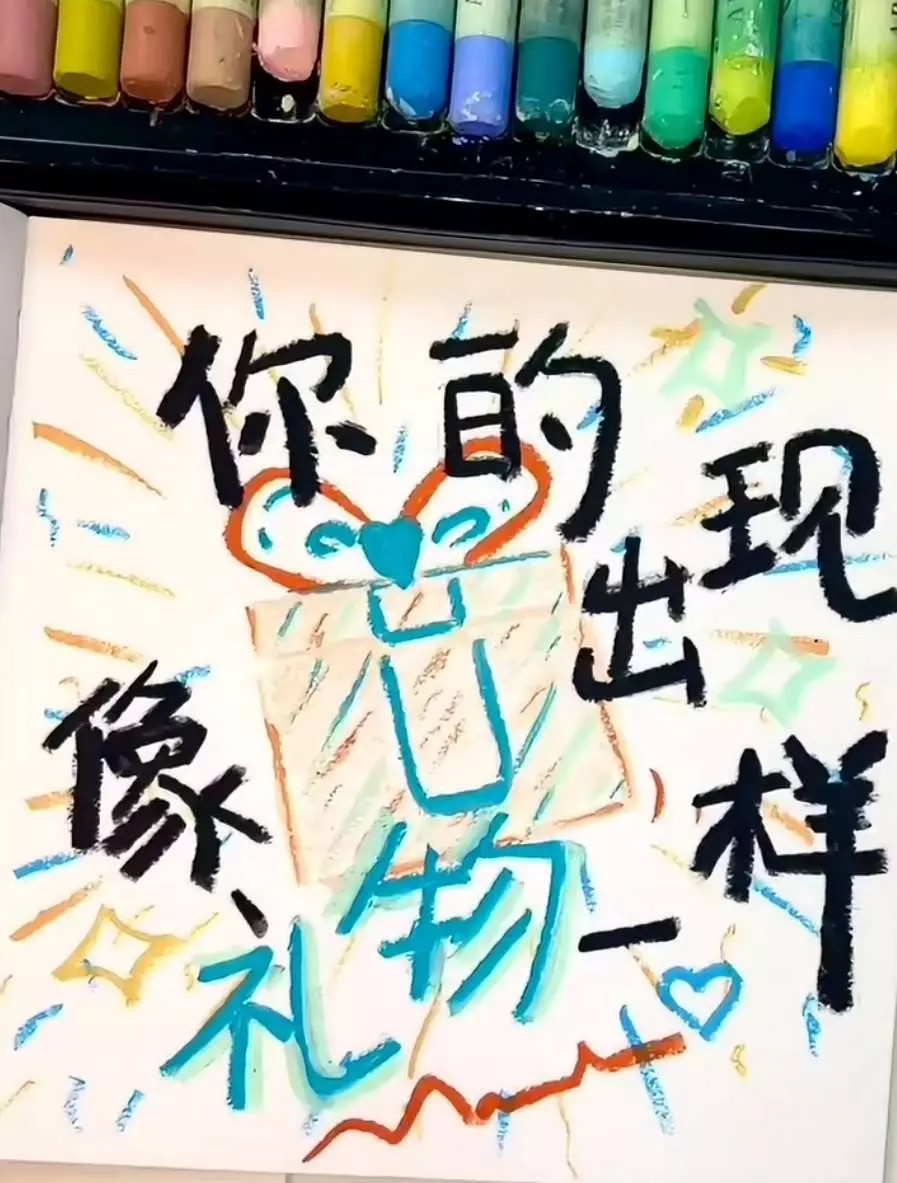 你的出现
像礼物一样